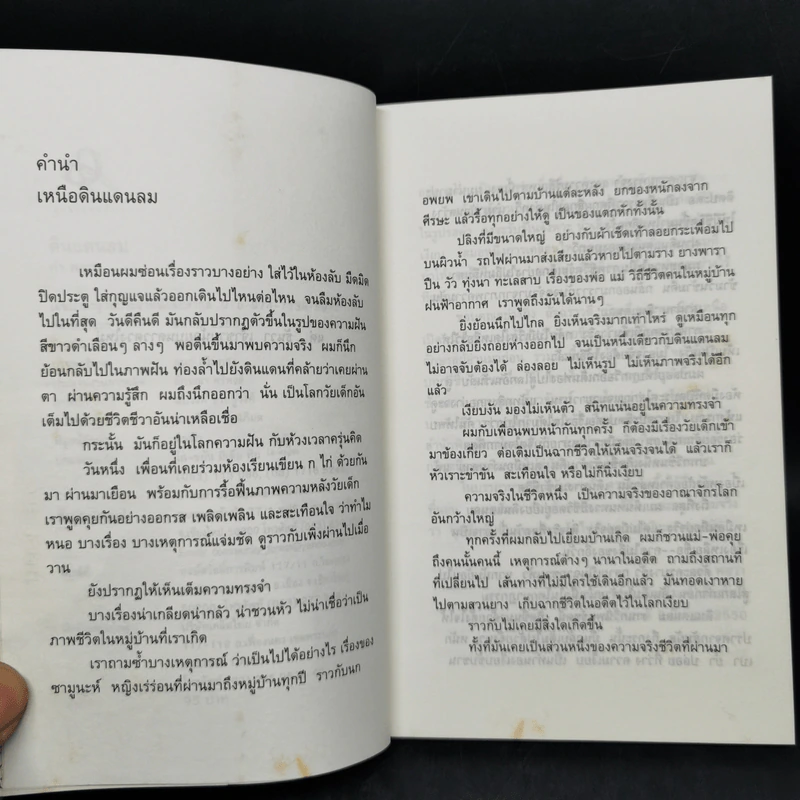 คำนำ
เหนือดินแดนลม
เหมือนผมซ่อนเรื่องราวบางอย่าง ใส่ไว้ในห้องลับ มืดมิด
ปิดประตู ใส่กุญแจแล้วออกเดินไปไหนต่อไหน จนลืมห้องลับ
ไปในที่สุด วันดีคืนดี มันกลับปรากฏตัวขึ้นในรูปของความฝัน
สีขาวดำเลือนๆ ลางๆ พอตื่นขึ้นมาพบความจริง ผมก็นึก
ย้อนกลับไปในภาพฝัน ท่องล้ำไปยังดินแดนที่คล้ายว่าเคยผ่าน
ตา ผ่านความรู้สึก ผมถึงนึกออกว่า นั่น เป็นโลกวัยเด็กอัน
เต็มไปด้วยชีวิตชีวาอันน่าเหลือเชื่อ
กระนั้น มันก็อยู่ในโลกความฝัน กับห้วงเวลาครุ่นคิด
วันหนึ่ง เพื่อนที่เคยร่วมห้องเรียนเขียน ก ไก่ ด้วยกัน
มา ผ่านมาเยือน พร้อมกับการรื้อฟื้นภาพความหลังวัยเด็ก
เราพูดคุยกันอย่างออกรส เพลิดเพลิน และสะเทือนใจ ว่าทำไม
หนอ บางเรื่อง บางเหตุการณ์แจ่มชัด ดูราวกับเพิ่งผ่านไปเมื่อ
วาน
ยังปรากฏให้เห็นเต็มความทรงจำ
บางเรื่องน่าเกลียดน่ากลัว น่าชวนหัว ไม่น่าเชื่อว่าเป็น
ภาพชีวิตในหมู่บ้านที่เราเกิด
เราถามซ้ำบางเหตุการณ์ ว่าเป็นไปได้อย่างไร เรื่องของ
ซามูนะห์ หญิงเร่ร่อนที่ผ่านมาถึงหมู่บ้านทุกปี ราวกับนก
อพยพ เขาเดินไปตามบ้านแต่ละหลัง ยกของหนักลงจาก
ศีรษะ แล้วรื้อทุกอย่างให้ดู เป็นของแตกหักทั้งนั้น
ปลิงที่มีขนาดใหญ่ อย่างกับผ้าเช็ดเท้าลอยกระเพื่อมไป
บนผิวน้ำ รถไฟผ่านมาส่งเสียงแล้วหายไปตามราง ยางพารา
ปืน วัว ทุ่งนา ทะเลสาบ เรื่องของพ่อ แม่ วิถีชีวิตคนในหมู่บ้าน
ฝนฟ้าอากาศ เราพูดถึงมันได้นานๆ
ยิ่งย้อนนึกไปไกล ยิ่งเห็นจริงมากเท่าไหร่ ดูเหมือนทุก
อย่างกลับยิ่งถอยห่างออกไป จนเป็นหนึ่งเดียวกับดินแดนลม
ไม่อาจจับต้องได้ ล่องลอย ไม่เห็นรูป ไม่เห็นภาพจริงได้อีก
แล้ว
เงียบงัน มองไม่เห็นตัว สนิทแน่นอยู่ในความทรงจำ
ผมกับเพื่อนพบหน้ากันทุกครั้ง ก็ต้องมีเรื่องวัยเด็กเข้า
มาข้องเกี่ยว ต่อเติมเป็นฉากชีวิตให้เห็นจริงจนได้ แล้วเราก็
หัวเราะขำขัน สะเทือนใจ หรือไม่ก็นิ่งเงียบ
ความจริงในชีวิตหนึ่ง เป็นความจริงของอาณาจักรโลก
อันกว้างใหญ่
ทุกครั้งที่ผมกลับไปเยี่ยมบ้านเกิด ผมก็ชวนแม่-พ่อคุย
ถึงคนนั้นคนนี้ เหตุการณ์ต่างๆ นานาในอดีต ถามถึงสถานที่
ที่เปลี่ยนไป เส้นทางที่ไม่มีใครใช้เดินอีกแล้ว มันทอดเงาหาย
ไปตามสวนยาง เก็บฉากชีวิตในอดีตไว้ในโลกเงียบ
ราวกับไม่เคยมีสิ่งใดเกิดขึ้น
ทั้งที่มันเคยเป็นส่วนหนึ่งของความจริงชีวิตที่ผ่านมา